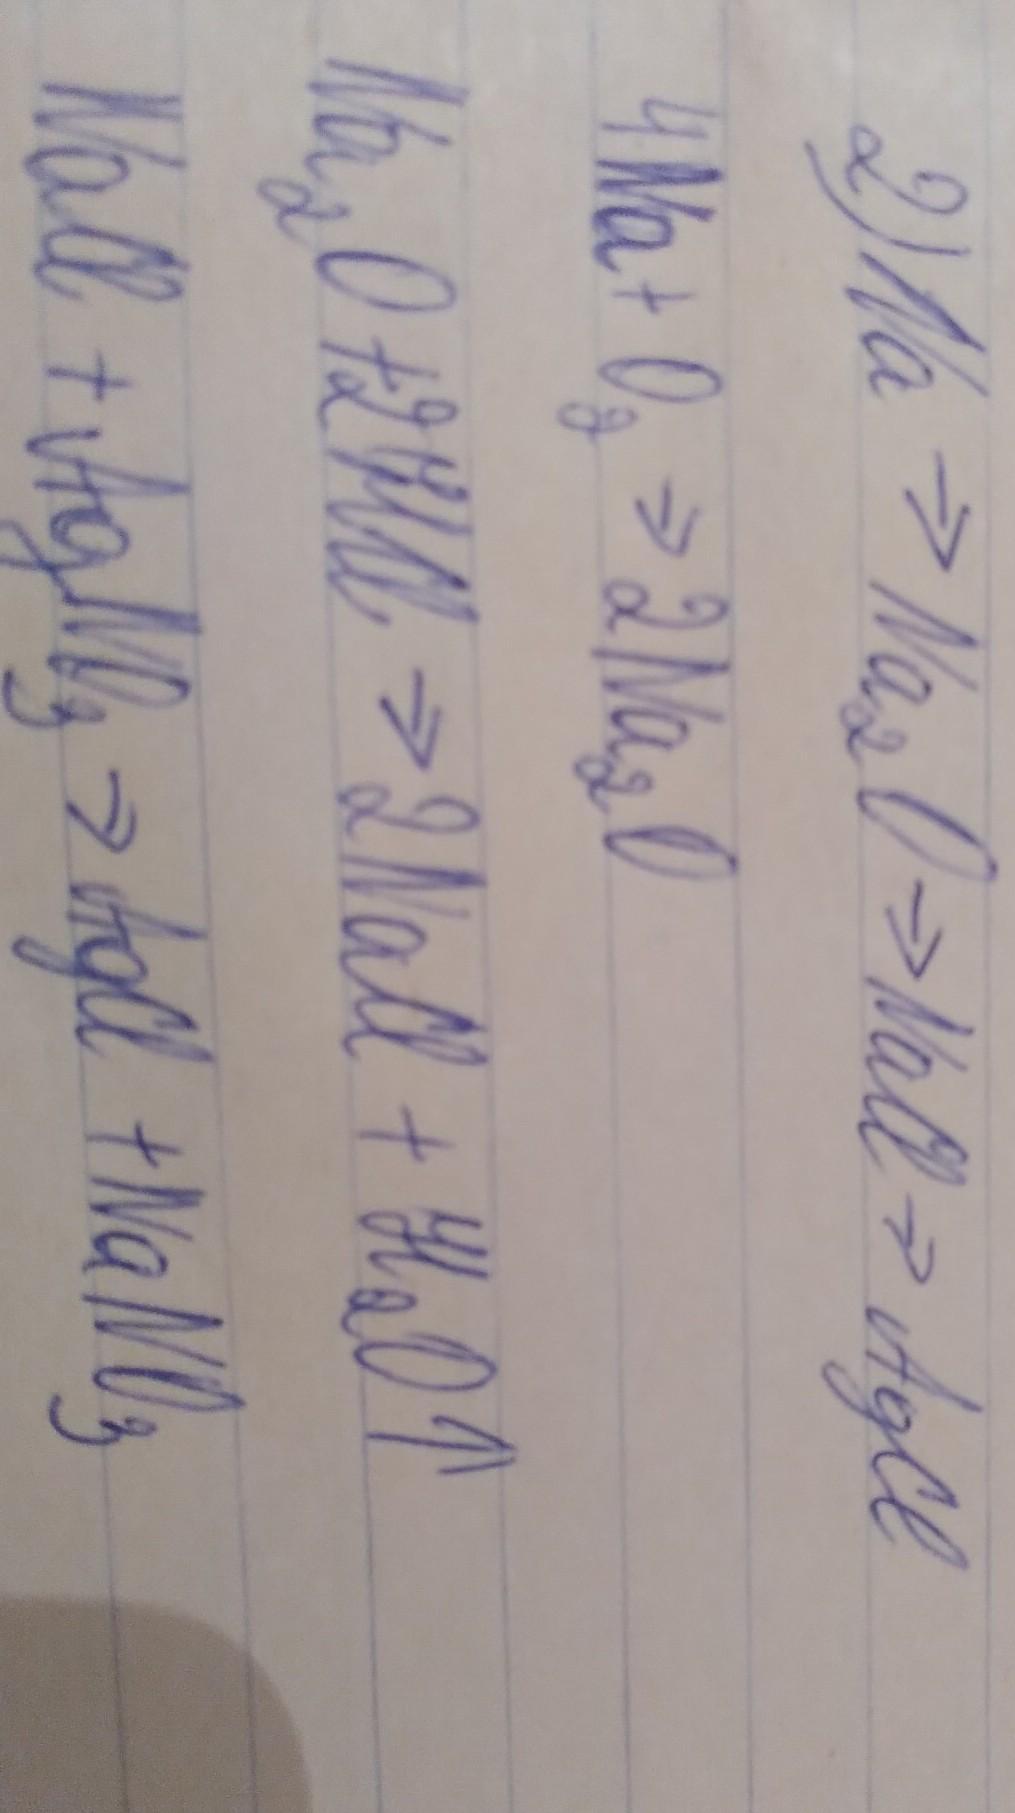 2) Na → Na₂O → NaCl → AgCl
4Na + O₂ → 2Na₂O
Na₂O + 2HCl → 2NaCl + H₂O↑
NaCl + AgNO₃ → AgCl + NaNO₃